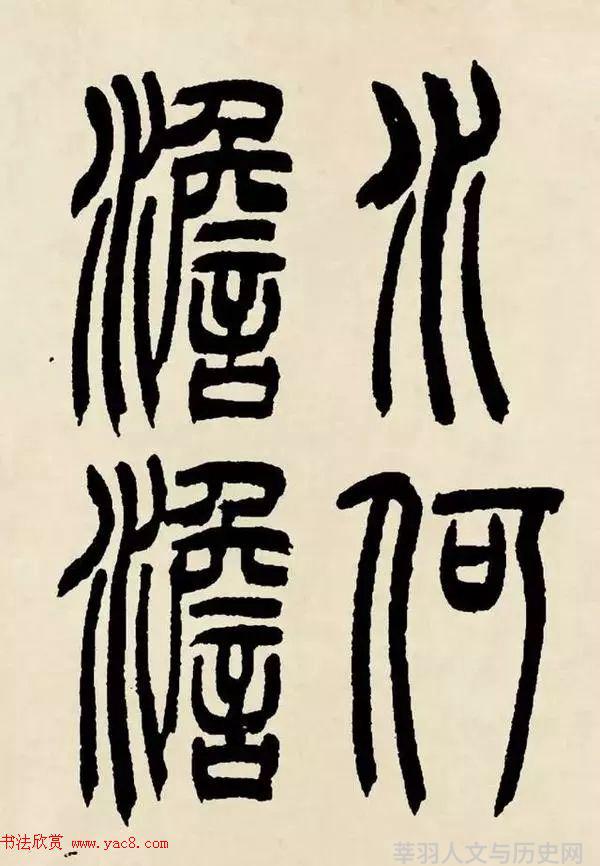 水何
澹澹
书法欣赏 www.yac8.com
莘羽人文与历史网